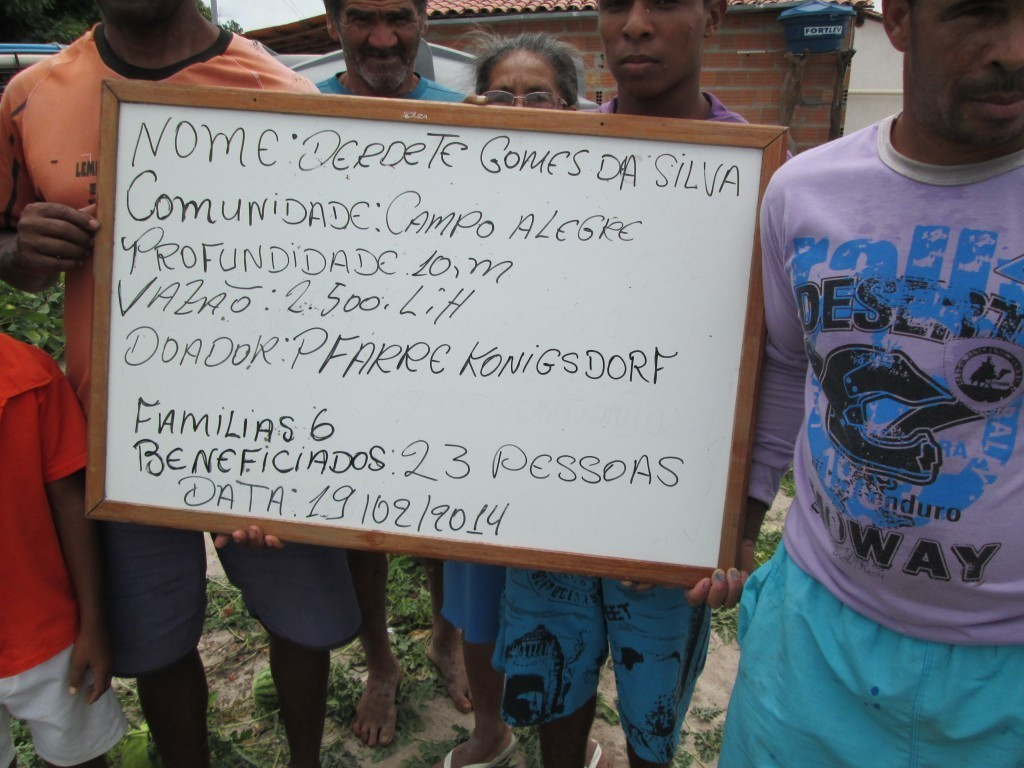 FORTLEV
NOME: DERDETE GOMES DA SILVA
COMUNIDADE: CAMPO ALEGRE
PROFUNDIDADE 10,m
VAZÃO: 2.500. L.H
DOADOR: PFARRE KONIGSDORF
FAMILIAS 6
BENEFICIADOS: 23 PESSOAS
DATA: 19/02/2014
DESERT
enduro